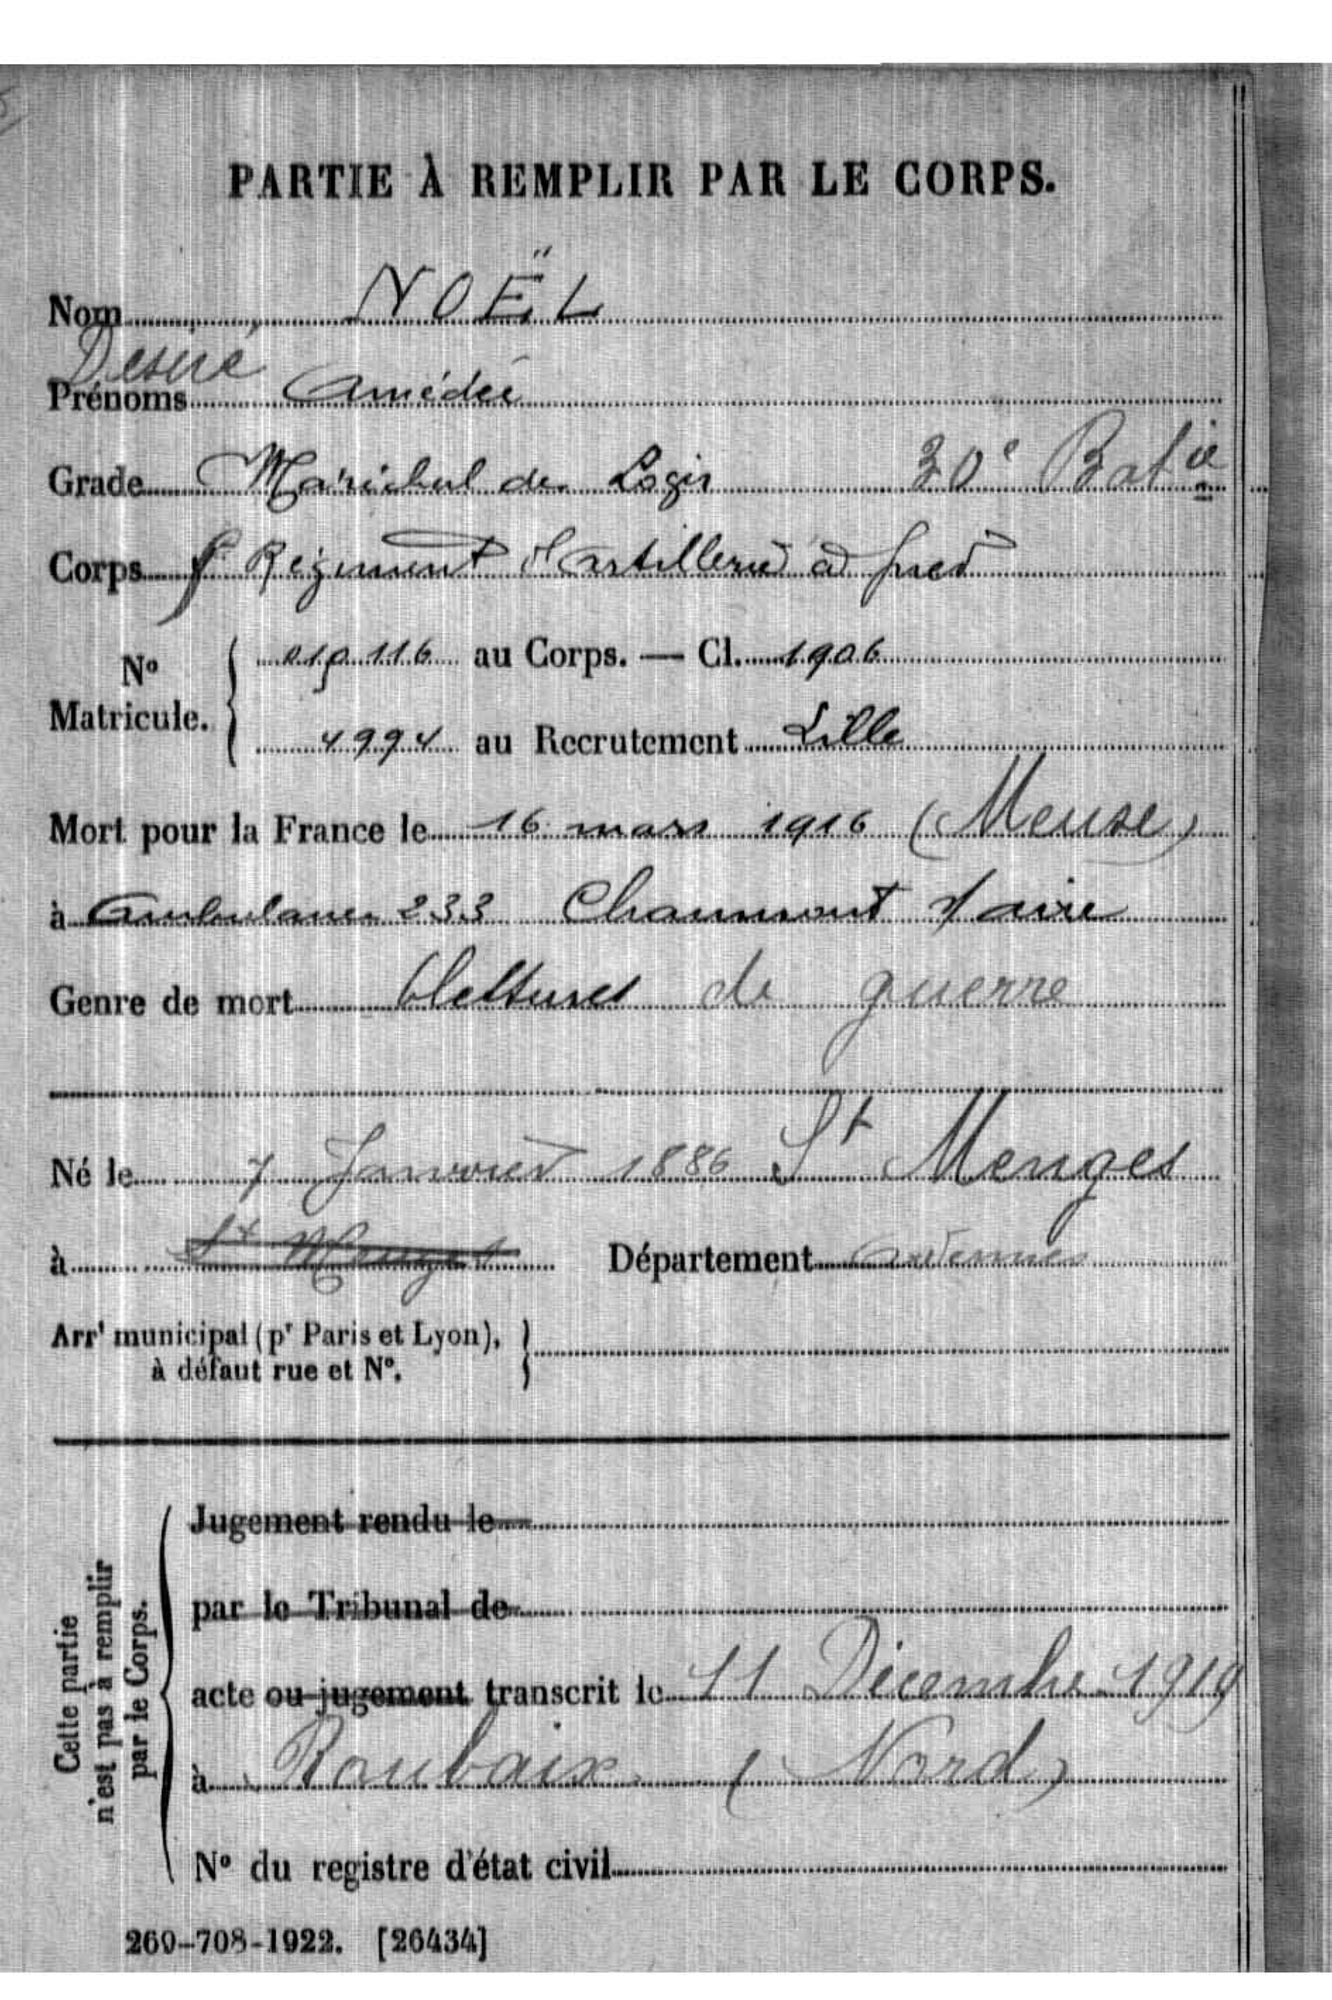 PARTIE À REMPLIR PAR LE CORPS.
Nom NOËL
Désiré
Prénoms Amédée
Grade Maréchal des Logis 30e Batie
Corps 1er Régiment d'artillerie à pied
No Matricule. 010 116 au Corps. — Cl. 1906
4994 au Recrutement Lille
Mort pour la France le 16 mars 1916 (Meuse)
à Ambulance 233 Chaumont s/aire
Genre de mort blessures de guerre
Né le 7 Janvier 1886 St Menges
à St Menges Département Ardennes
Arrt municipal (pr Paris et Lyon),
à défaut rue et No.
Cette partie
n'est pas à remplir
par le Corps.
Jugement rendu le
par le Tribunal de
acte ou jugement transcrit le 11 Décembre 1919
à Roubaix (Nord)
No du registre d'état civil
269-708-1922. [26434]